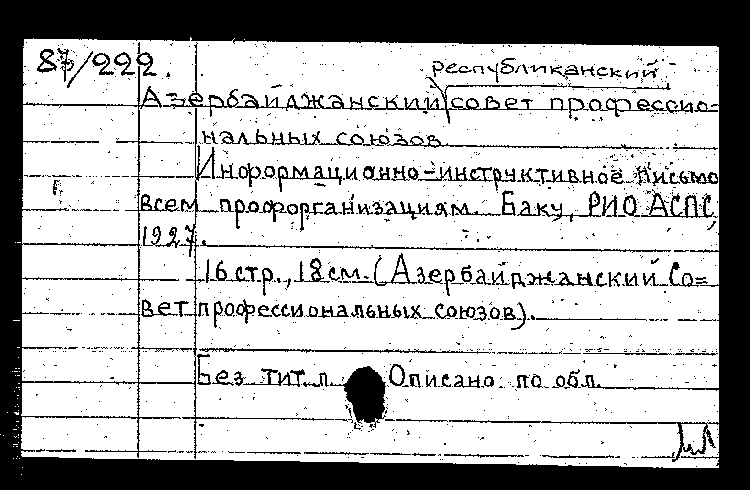 87/222.
республиканский
Азербайджанский совет профессио-
нальных союзов
Информационно-инструктивное письмо
всем профорганизациям. Баку, РИО АСПС,
1927.
16 стр., 18 см. (Азербайджанский Со-
вет профессиональных союзов).
Без тит. л. Описано по обл.